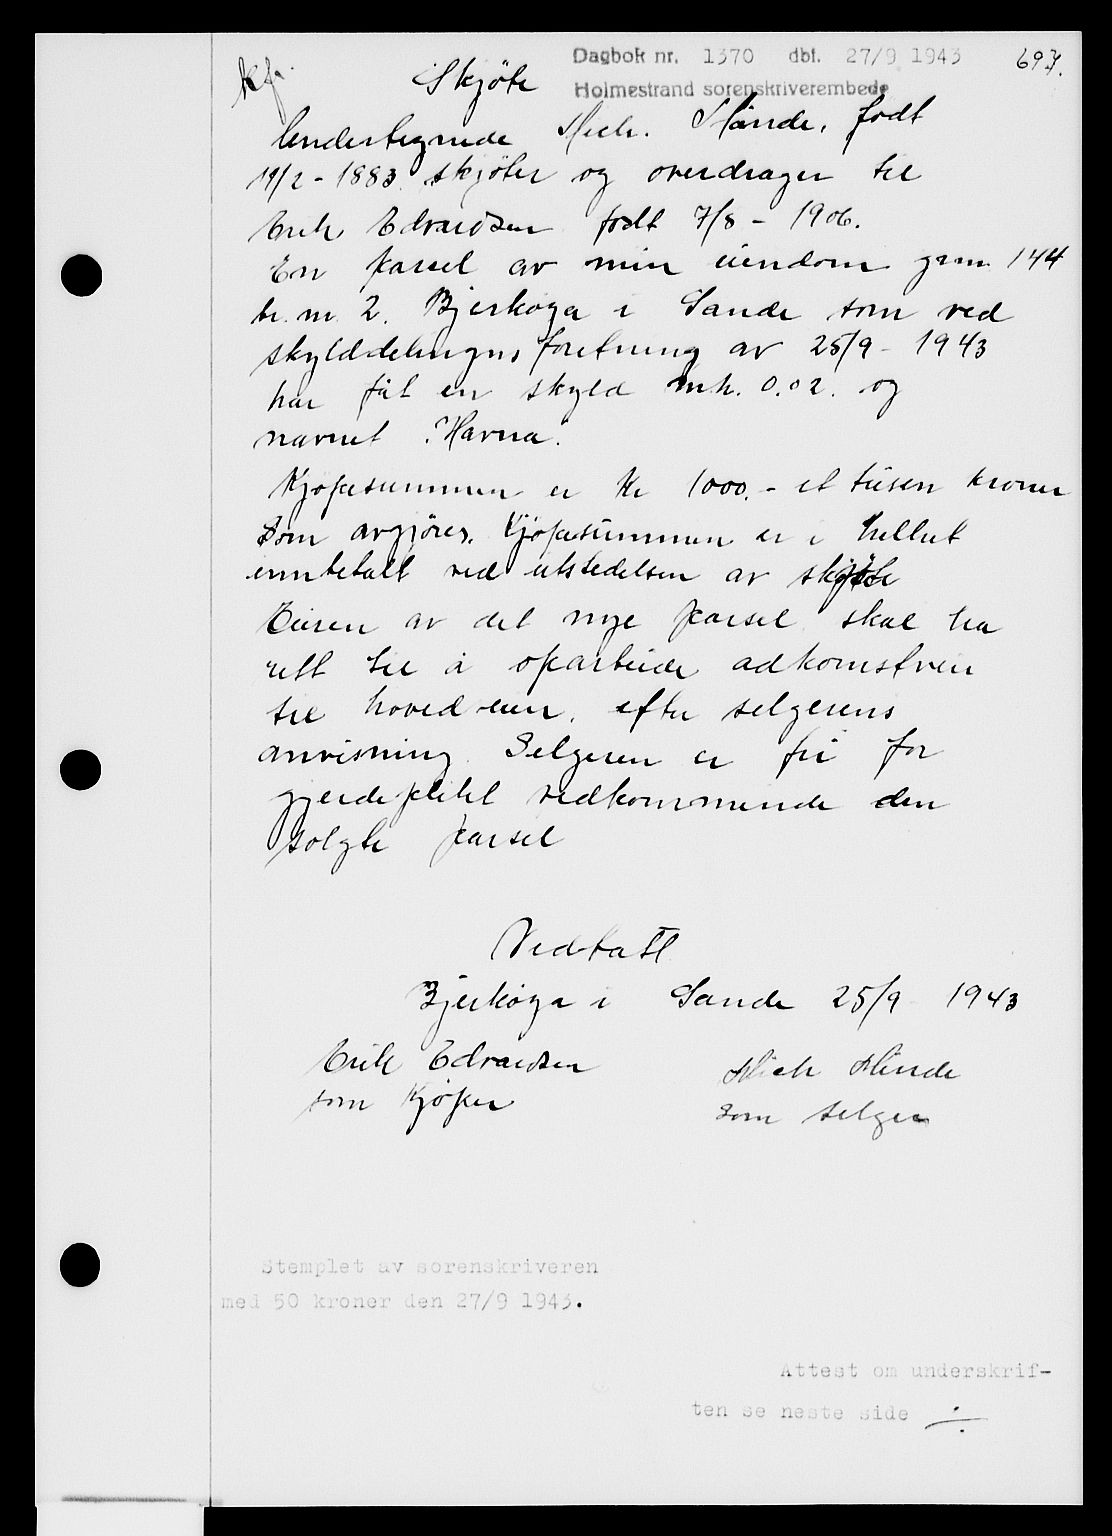 Dagbok nr. 1370 dbf. 27/9 1943
697.
Holmestrand sorenskriverembede
kfr.
Skjöte
Undertegnede Mich. Hande, født
19/2 - 1883. skjöter og overdrager til
Erik Edvardsen født 7/8 - 1906.
En parsel av min eiendom gr.nr. 144
br. nr. 2. Bjerkøya i Sande som ved
skylddelingns forretning av 25/9 - 1943
har fåt en skyld mrk. 0.02. og
navnet "Havna".
Kjøpesummen er kr 1000.- et tusen kroner
som avgjøres. Kjøpesummen er i hellet
innbetalt ved utstedelsen av skjöte
Eieren av det nye parsel skal ha
rett til å oparbeide adkomstvei
til hovedveien, efter selgerens
anvisning. Selgeren er fri for
gjerdeplikt vedkommende den
solgte parsel
Vedtatt
Bjerkøya i Sande 25/9 1943
Erik Edvardsen
som Kjøper
Mich
som selger
Stemplet av sorenskriveren
med 50 kroner den 27/9 1943.
Attest om underskrif-
ten se neste side ./.